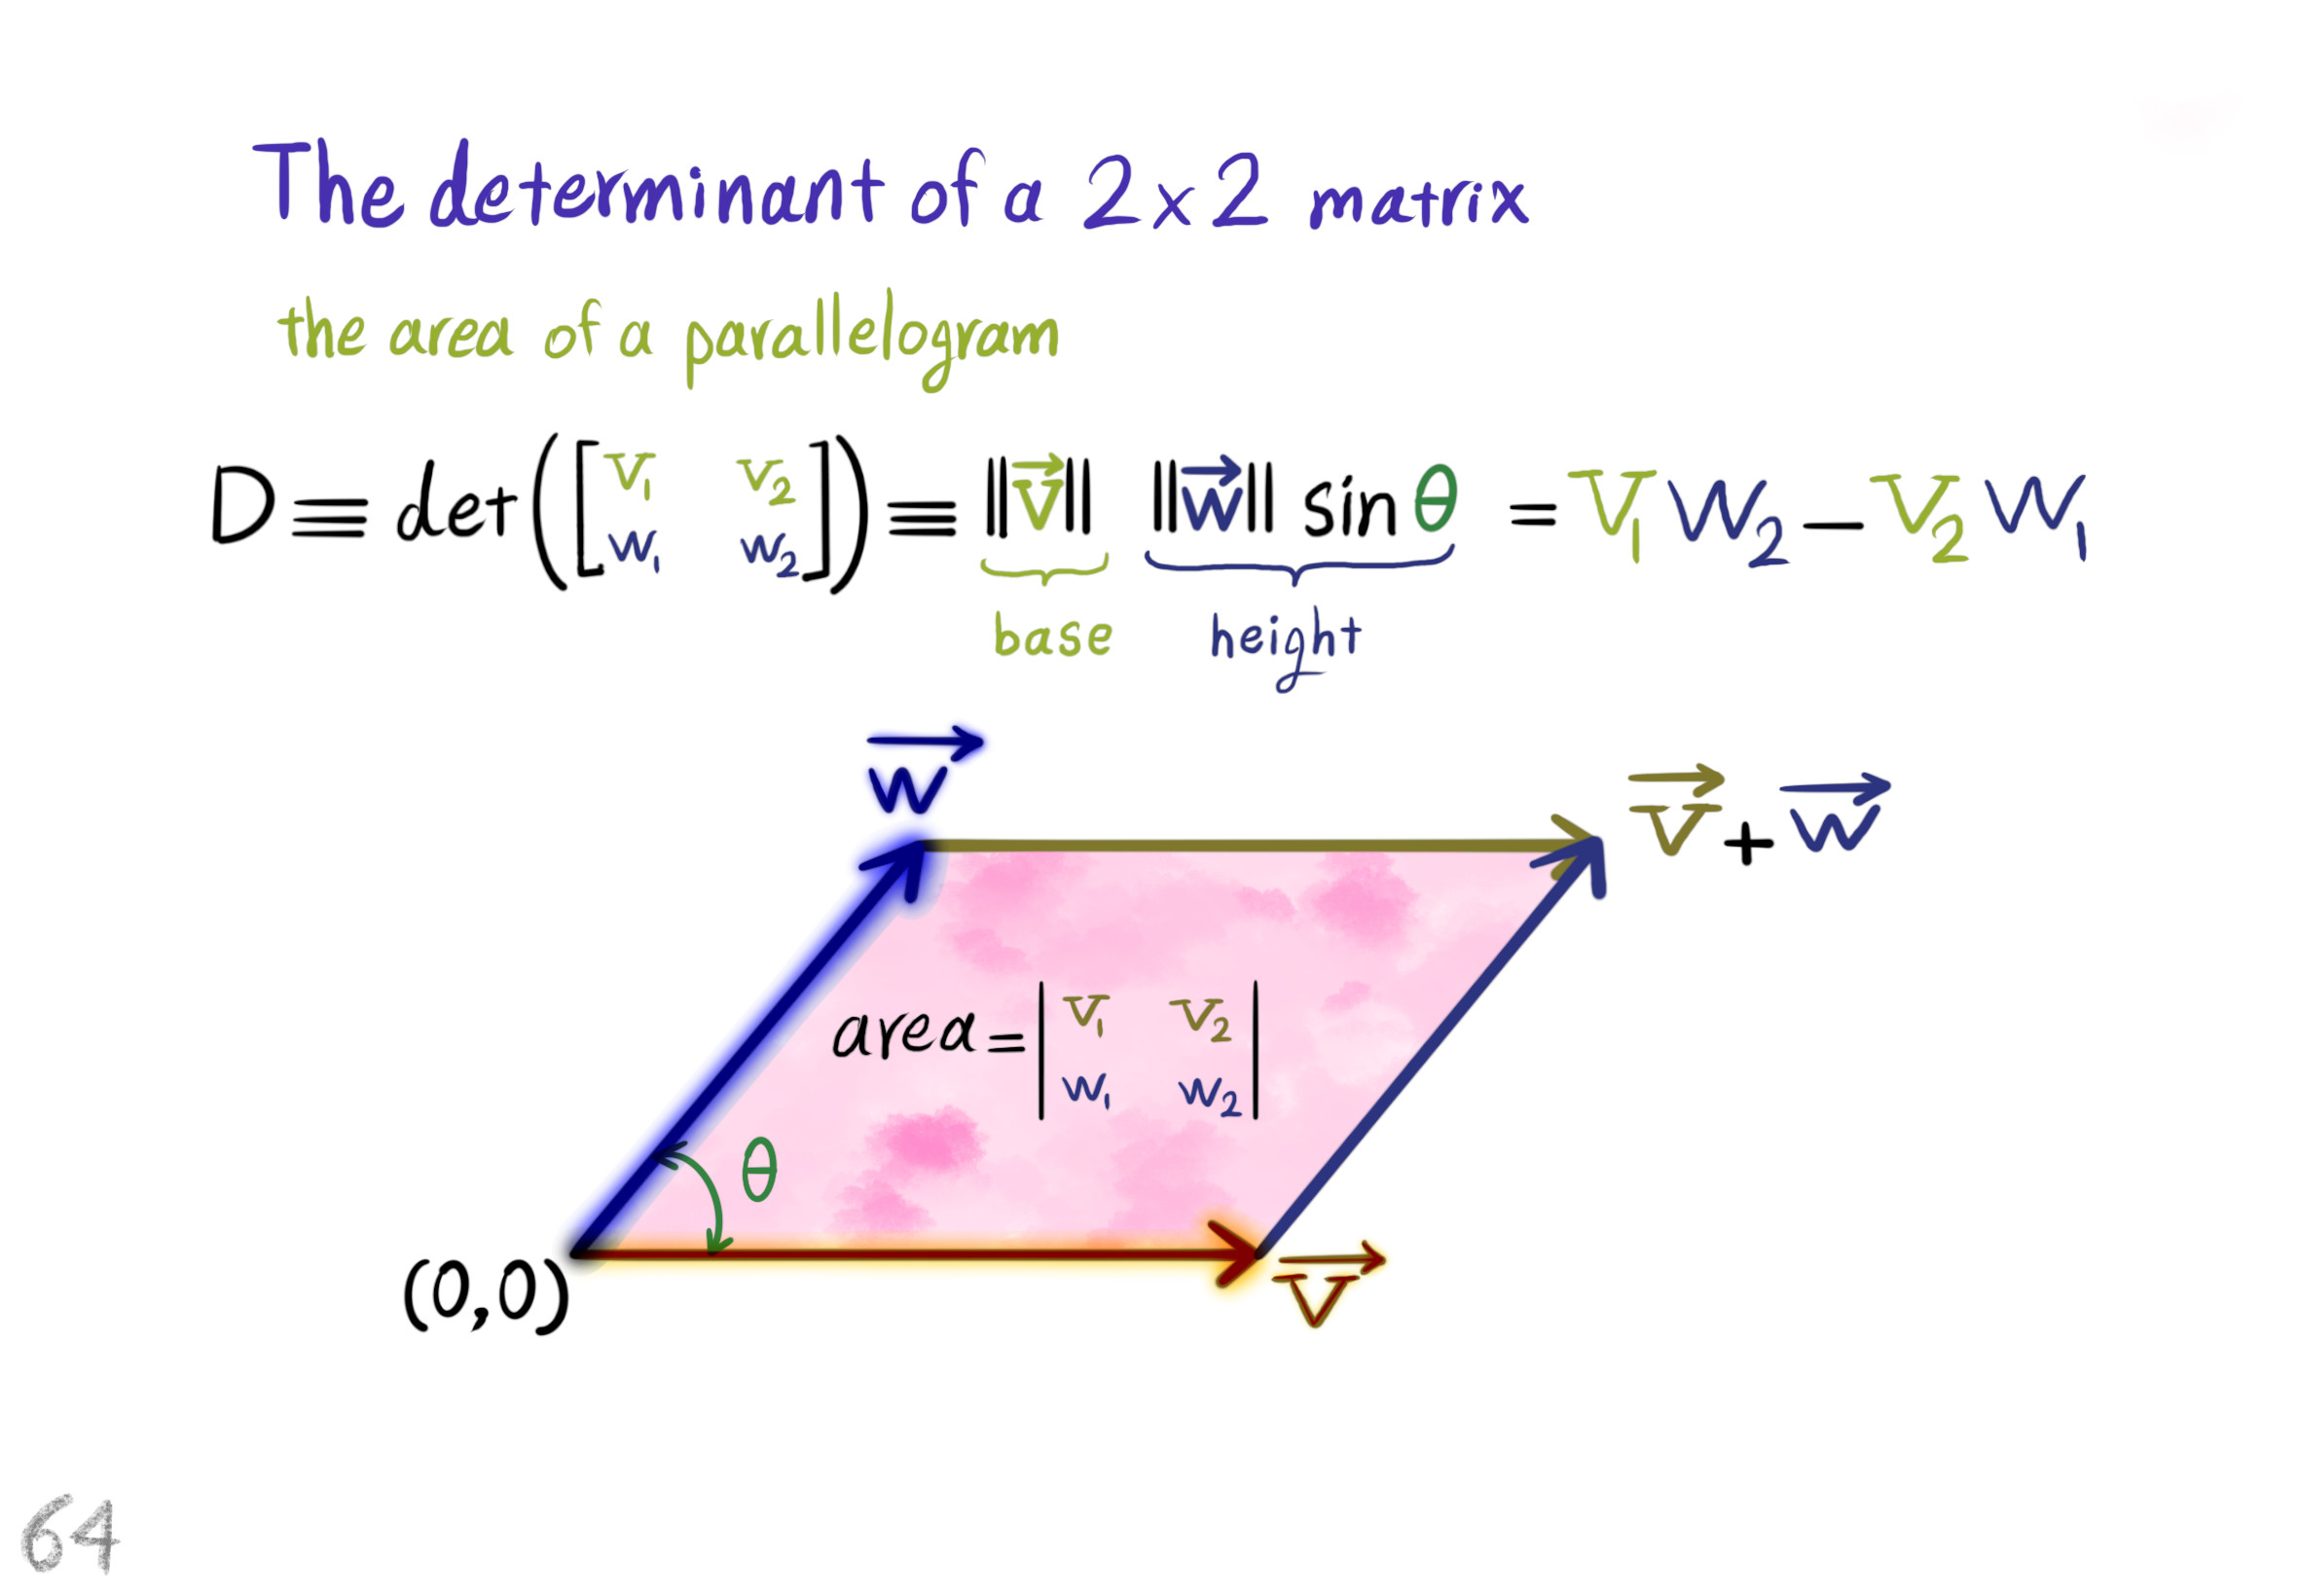 The determinant of a 2x2 matrix
the area of a parallelogram
D ≡ det([v₁ v₂ w₁ w₂]) ≡ ‖v⃗‖ ‖w⃗‖ sin θ = v₁ w₂ – v₂ w₁
base height
w⃗
v⃗ + w⃗
area = | v₁ v₂ |
| w₁ w₂ |
θ
(0,0)
v⃗
64